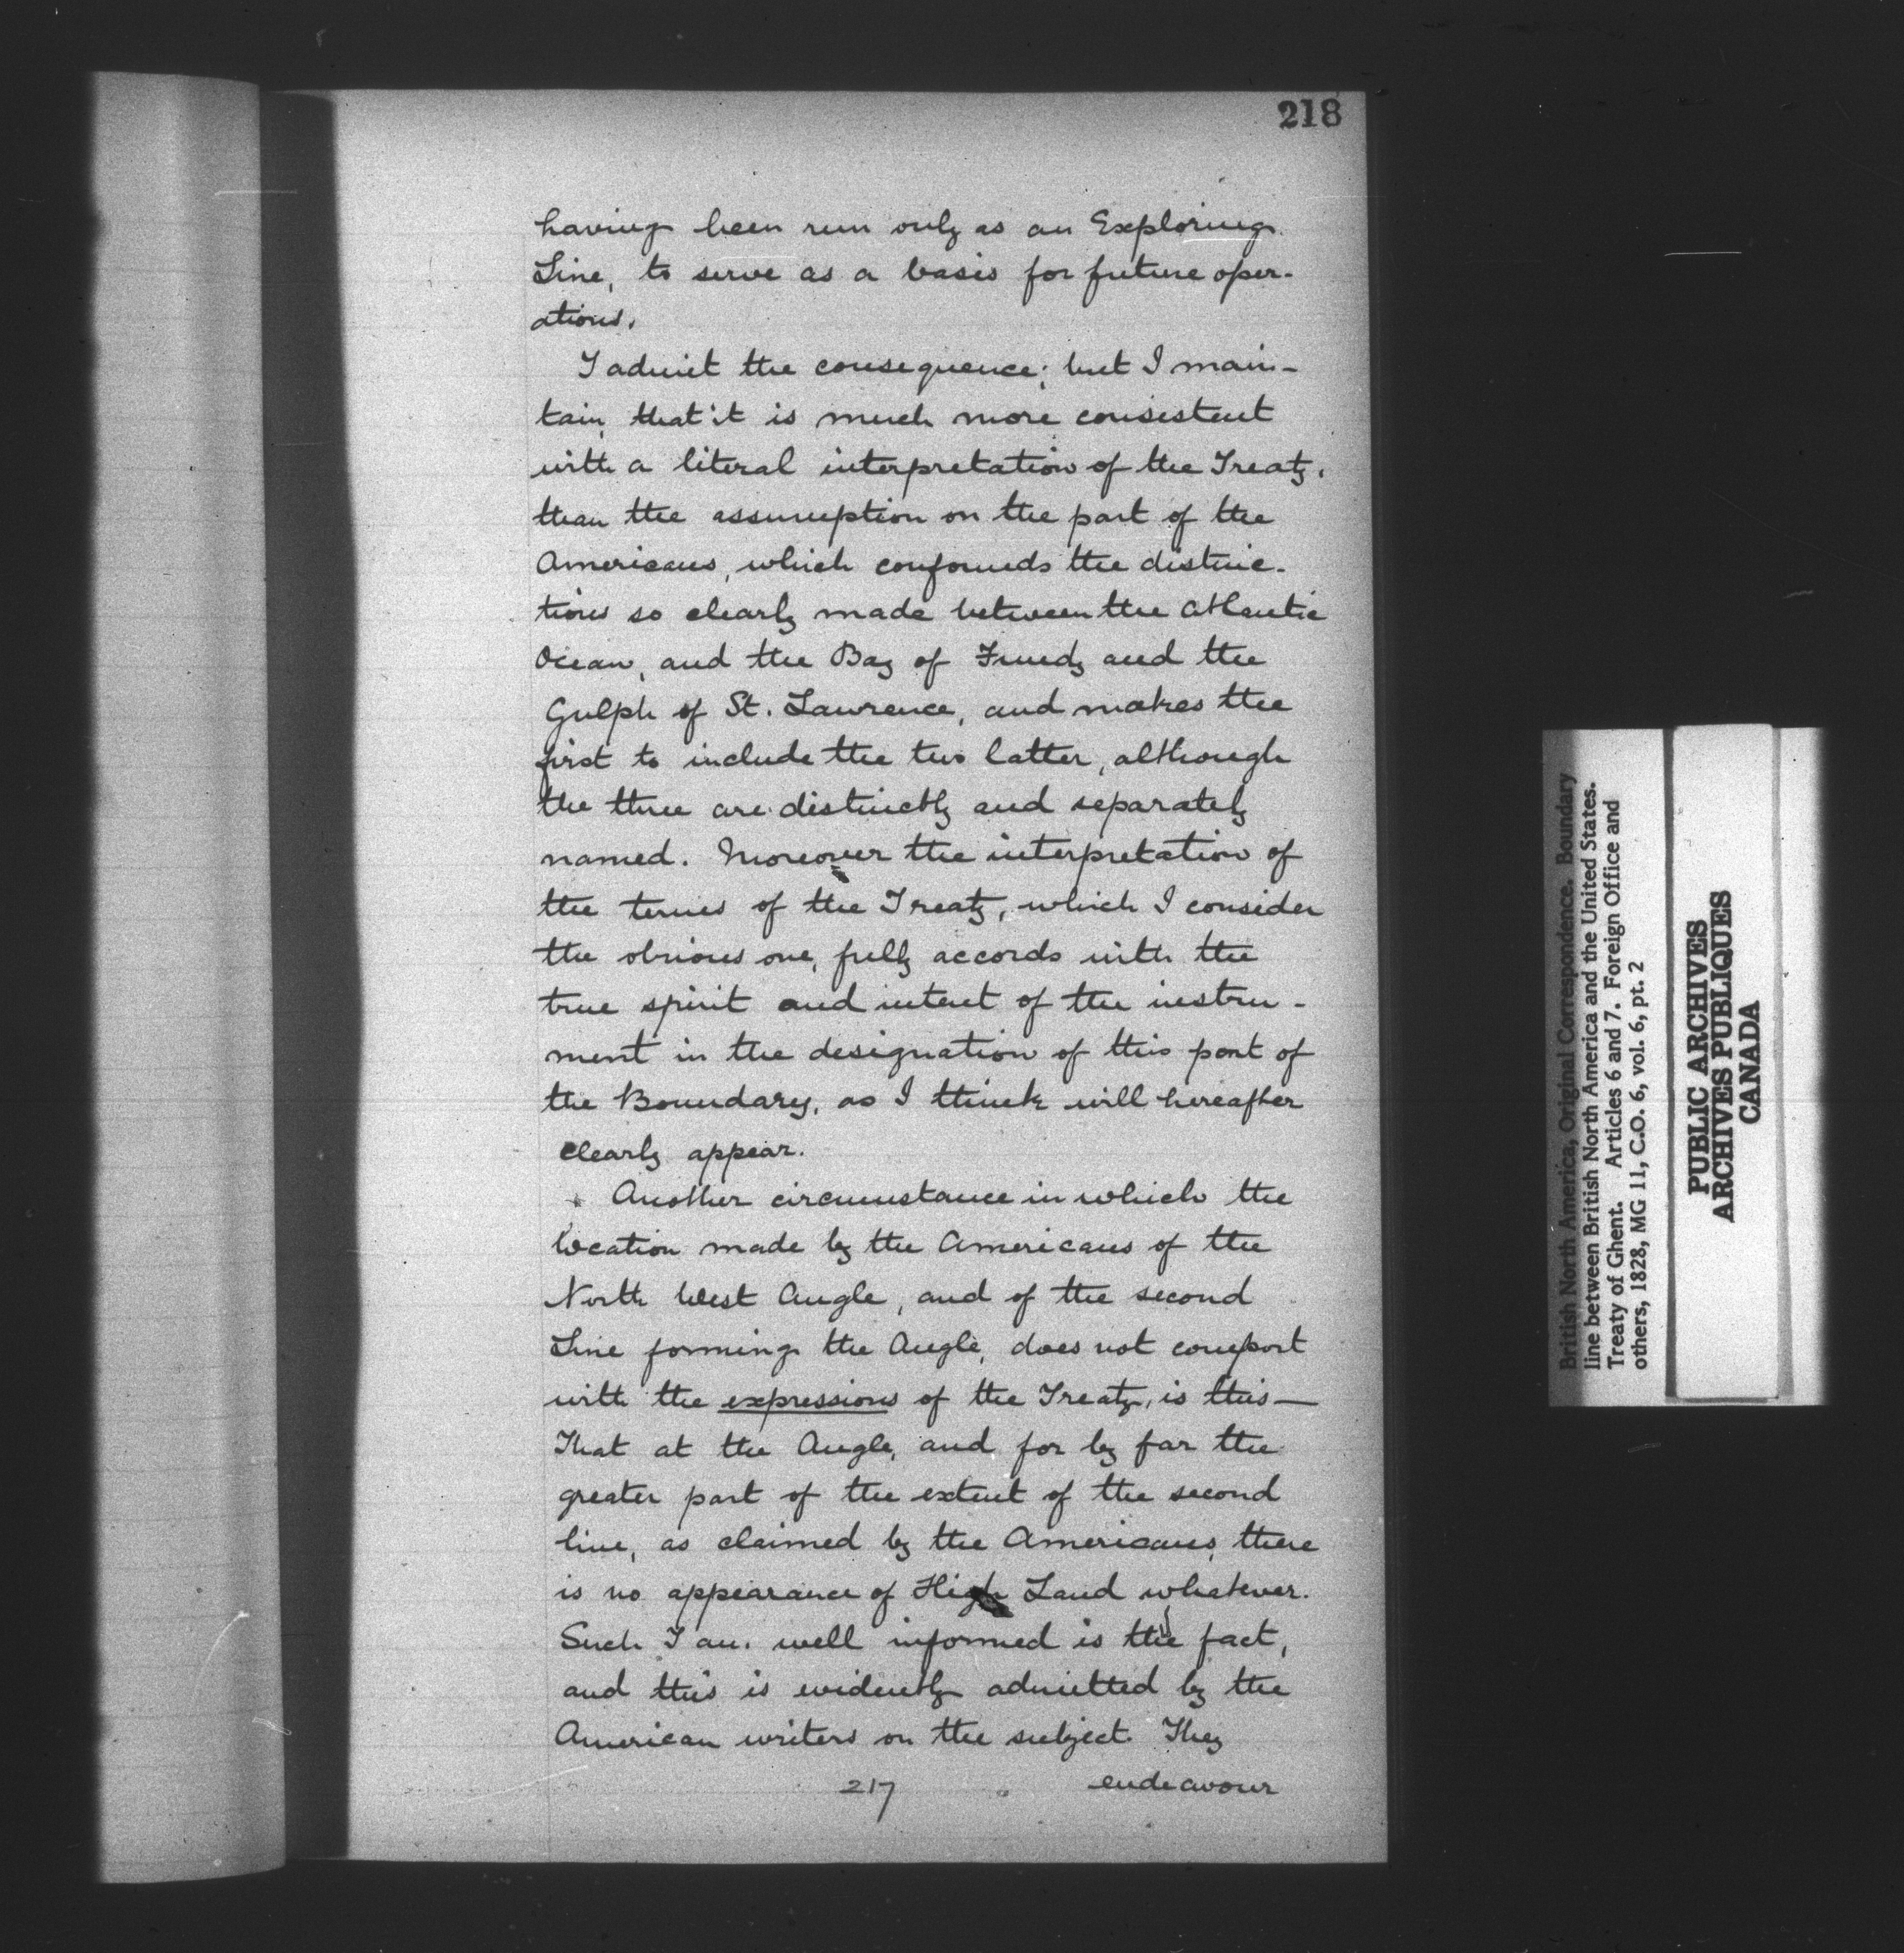 218
having been run only as an Exploring
Line, to serve as a basis for future oper-
ations.
I admit the consequence; but I main-
tain, that it is much more consistent
with a literal interpretation of the Treaty,
than the assumption on the part of the
Americans, which confounds the distinc-
tions so clearly made between the Atlantic
Ocean, and the Bay of Fundy and the
Gulph of St. Lawrence, and makes the
first to include the two latter, although
the three are distinctly and separately
named. Moreover the interpretation of
the terms of the Treaty, which I consider
the obvious one, fully accords with the
true spirit and intent of the instru-
ment in the designation of this part of
the Boundary, as I think will hereafter
clearly appear.
Another circumstance in which the
location made by the Americans of the
North West Angle, and of the second
Line forming the Angle, does not comport
with the expressions of the Treaty, is this—
That at the Angle, and for by far the
greater part of the extent of the second
line, as claimed by the Americans, there
is no appearance of High Land whatever.
Such I am well informed is the fact,
and this is evidently admitted by the
American writers on the subject. They
217 endeavour
British North America, Original Correspondence. Boundary
line between British North America and the United States.
Treaty of Ghent. Articles 6 and 7. Foreign Office and
others, 1828, MG 11, C.O. 6, vol. 6, pt. 2
PUBLIC ARCHIVES
ARCHIVES PUBLIQUES
CANADA